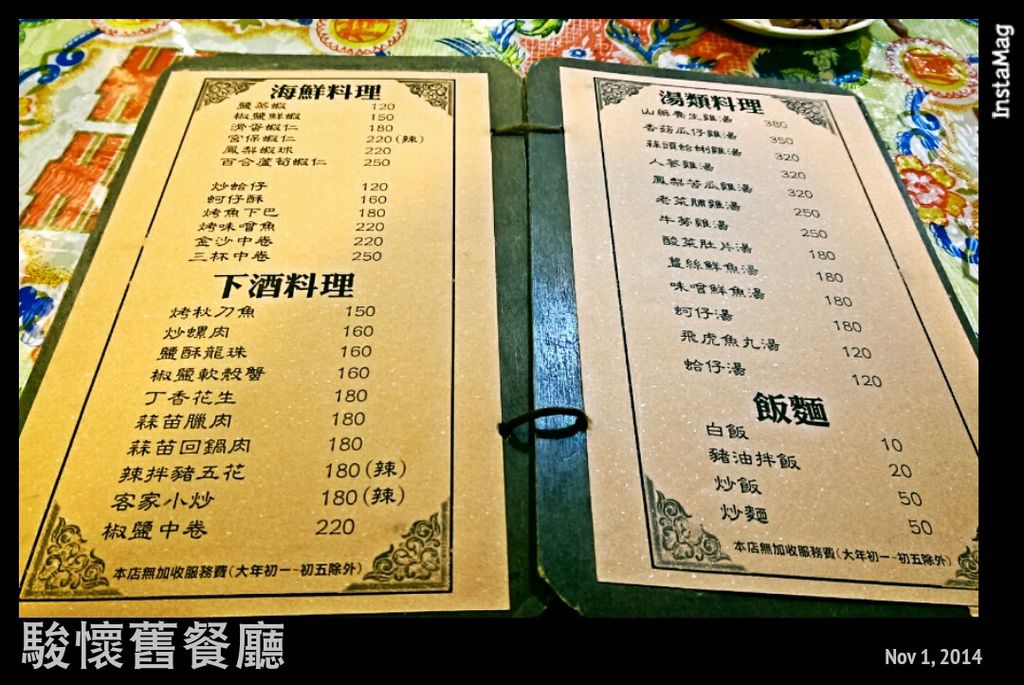 海鮮料理
鹽蒸蝦 120
椒鹽鮮蝦 150
滑蛋蝦仁 180
宮保蝦仁 220(辣)
鳳梨蝦球 220
百合蘆筍蝦仁 250
炒蛤仔 120
蚵仔酥 160
烤魚下巴 180
烤味噌魚 220
金沙中卷 220
三杯中卷 250
下酒料理
烤秋刀魚 150
炒螺肉 160
鹽酥龍珠 160
椒鹽軟殼蟹 160
丁香花生 180
蒜苗臘肉 180
蒜苗回鍋肉 180
辣拌豬五花 180(辣)
客家小炒 180(辣)
椒鹽中卷 220
本店無加收服務費(大年初一~初五除外)
湯類料理
山藥養生雞湯 380
香菇瓜仔雞湯 350
蒜頭蛤蜊雞湯 320
人蔘雞湯 320
鳳梨苦瓜雞湯 320
老菜脯雞湯 250
牛蒡雞湯 250
酸菜肚片湯 180
薑絲鮮魚湯 180
味噌鮮魚湯 180
蚵仔湯 180
飛虎魚丸湯 120
蛤仔湯 120
飯麵
白飯 10
豬油拌飯 20
炒飯 50
炒麵 50
本店無加收服務費(大年初一~初五除外)
InstaMag
駿懷舊餐廳
Nov 1, 2014